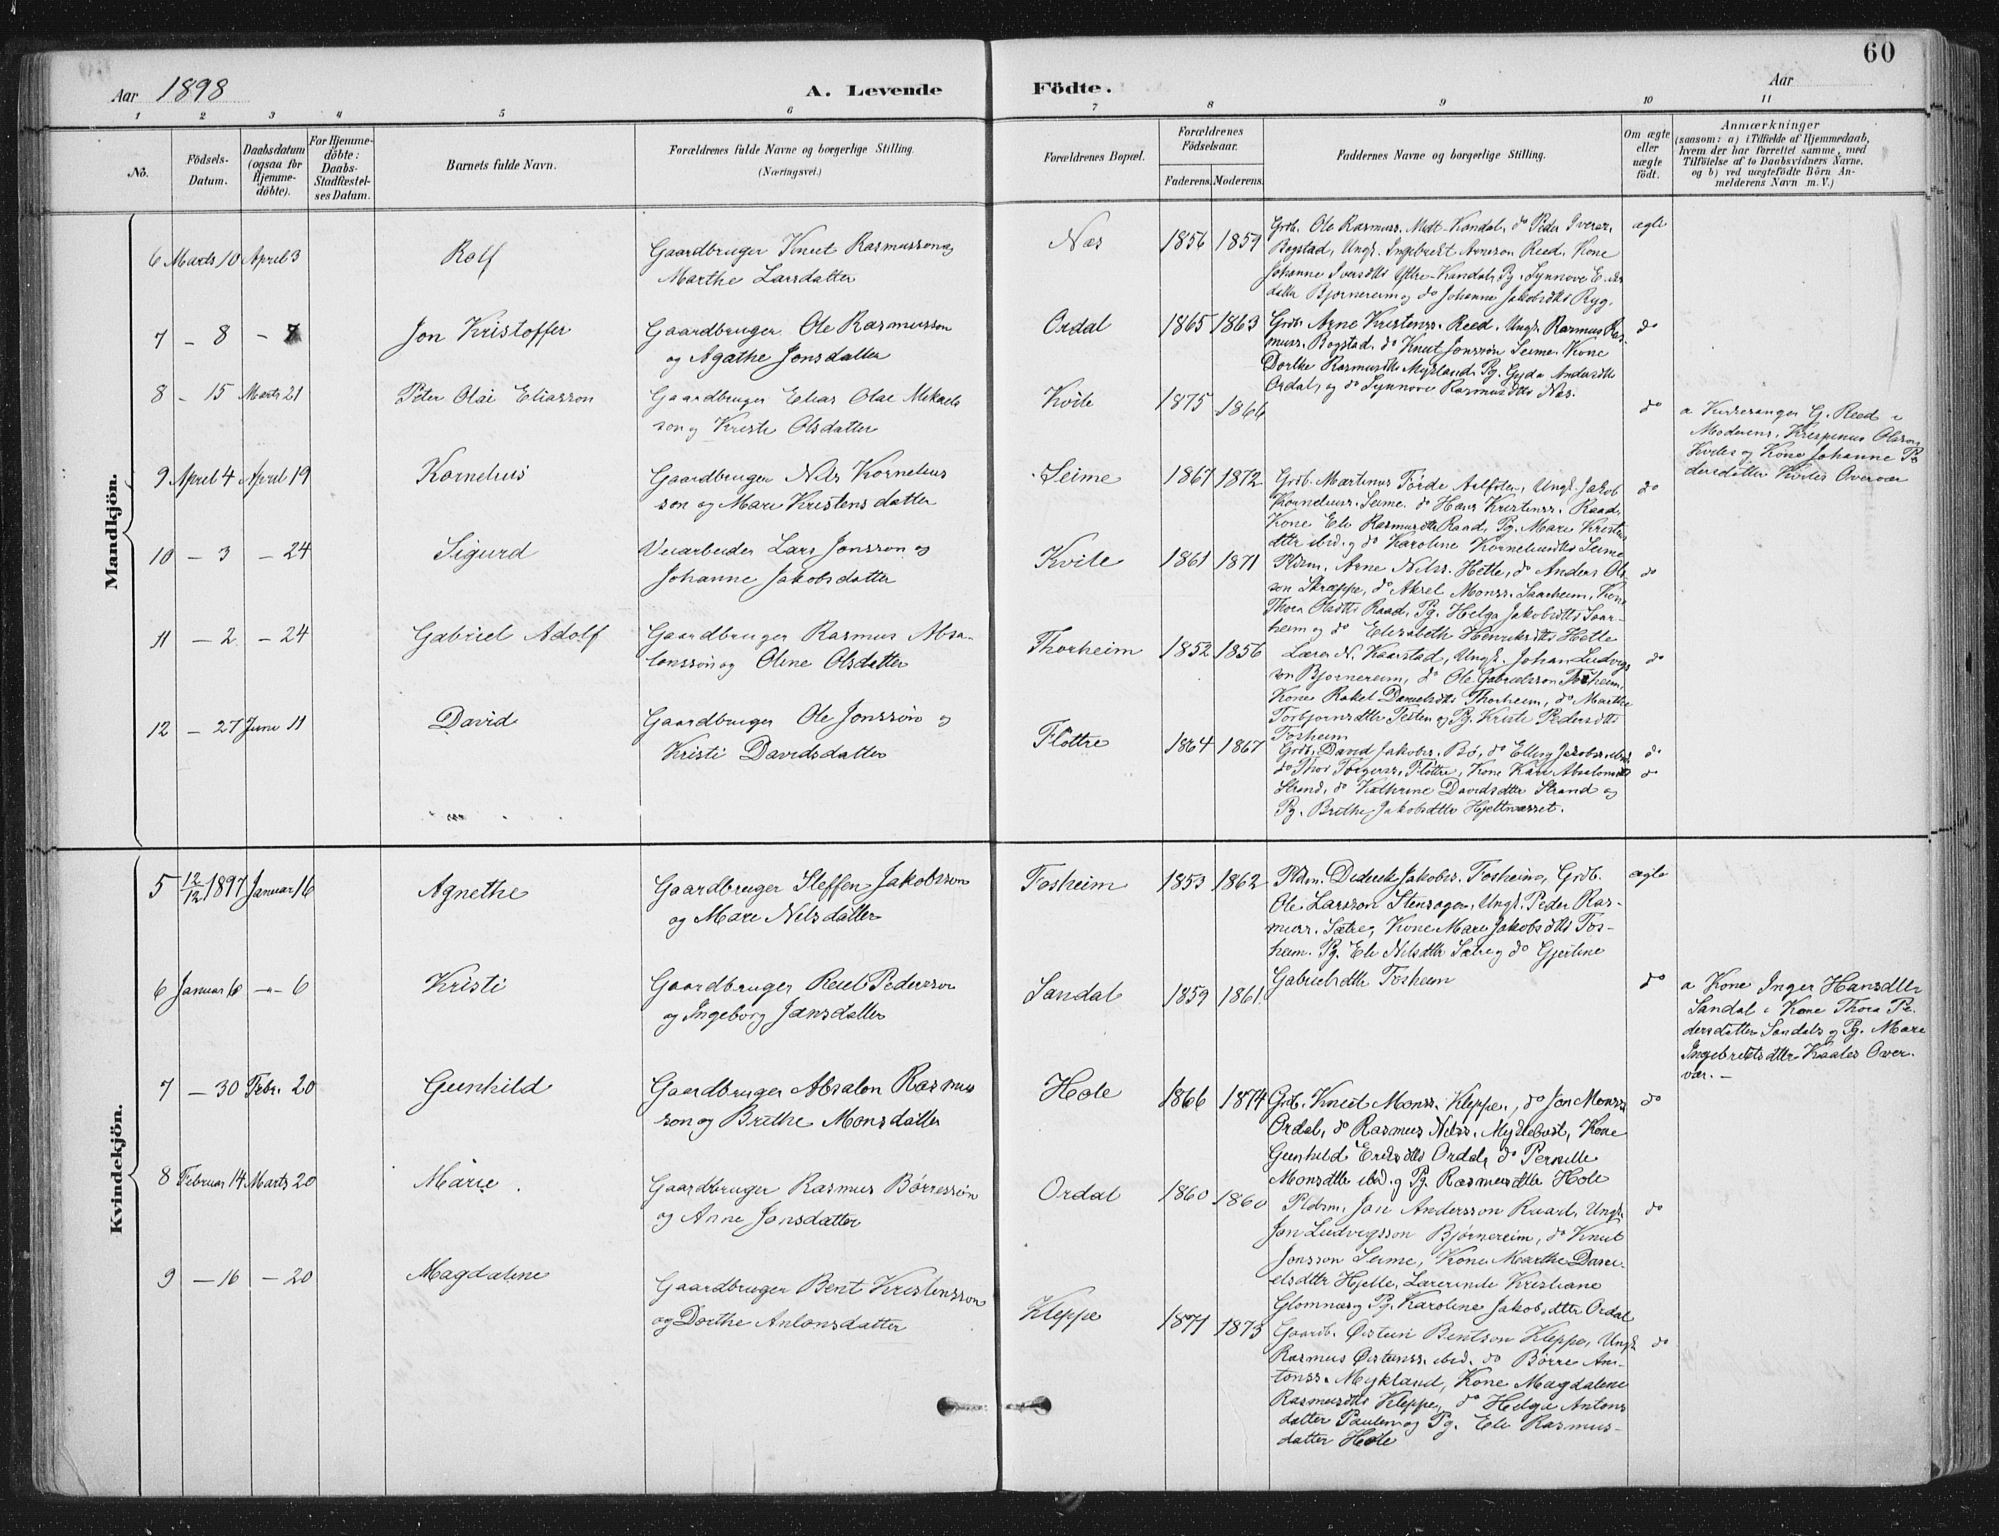 60
Aar 1898
A. Levende Födte.
Aar
1 2 3 4 5 6 7 8 9 10 11
No.
Födsels-Datum.
Daabsdatum (ogsaa for Hjemme-döbte).
For Hjemme-döbte: Daabs-Stadfæstel-ses Datum.
Barnets fulde Navn.
Forældrenes fulde Navne og borgerlige Stilling. (Næringsvei.)
Forældrenes Bopæl.
Forældrenes Födselsaar.
Faderens. Moderens.
Faddernes Navne og borgerlige Stilling.
Om ægte eller uægte födt.
Anmærkninger
(saasom: a) i Tilfælde af Hjemmedaab, hvem der har forrettet samme, med Tilföielse af to Daabsvidners Navne, og b) ved uægtefödte Börn An-melderens Navn m. V.)
Mandkjön.
6 Marts 10 April 3 Rolf
Gaardbruger Knut Rasmusson og
Marthe Larsdatter
Nes 1856 1859
Grdb. Ole Rasmuss. Midt-Kandal, do Peder Iverss.
Bogstad, Ungk. Ingebrekt Arneson Reed, Kone
Johanne Iversdtts Ytre-Kandal, Pg. Synnove
datter Bjornereim og do Johanne Jakobsdtts Ryg.
ægte
7 - 8 - Jon Kristoffer
Gaardbruger Ole Rasmusson
og Agathe Jonsdatter
Ordal 1865 1863
Grdb. Arne Kristenss. Reed, Ungk. Rasmus Ras-
muss. Bogstad, do Knut Jonsson Seime, Kone
Dorthe Rasmusdtts Mykland, Pg. Gyda Andersdtts
Ordal, og do Synnove Rasmusdtts Nes.
do
8 - 15 Marts 21 Peter Olai Eliasson
Gaardbruger Elias Olai Mikaels
son og Kristi Olsdatter
Kvile 1875 1866
do
a Kirkesanger G. Reed i
Moderens, Krespinus Olsson
Kviles og Kone Johanne Pe
dersdatter Kviles Overvær
9 April 4 April 19 Kornelius
Gaardbruger Nils Kornelius
son og Mari Kristensdatter
Seime 1867 1872
Grdb. Martinus Förde Aalfoten, Ungk. Jakob
Korneliuss. Seime, do Hans Kristenss. Raad,
Kone Eli Rasmusdtts Raad, Pg. Mari Kristens
dtter ibid. og do Karoline Korneliusdtts Seime
do
10 - 3 - 24 Sigurd
Veiarbeider Lars Jonsson og
Johanne Jakobsdatter
Kvile 1861 1871
Pldsm. Arne Nilss. Hetle, do Anders Ole
son Skræppe, do Aksel Monss. Saarheim, Kone
Thora Olsdtts Raad, Pg. Helga Jakobsdtts Saar-
heim og do Elisabeth Henriksdtts Hetle
do
11 - 2 - 24 Gabriel Adolf
Gaardbruger Rasmus Absa-
lonsson og Oline Olsdatter
Thorheim 1852 1856
Lærer N. Kaarstad, Ungk. Johan Ludvigs
son Bjornereim, do Ole Gabrielsson Fosheim,
Kone Rakel Danielsdtts Thorheim, do Marthe
Torbjornsdtter Testen og Pg. Kristi Pedersdtts
Fosheim
do
12 - 27 Juni 11 David
Gaardbruger Ole Jonsson og
Kristi Davidsdatter
Flöttre 1864 1867
Grdb. David Jakobss. Bö, do Elling Jakobss. ibid.
do Thor Torgerss. Flöttre, Kone Kari Absalonsdtts
Strand, do Kathrine Davidsdtter Strand og
Pg. Brithe Jakobsdtter Hjeltneset.
do
do
Kvindekjön.
5 12/12 1897 Januar 16 Agnethe
Gaardbruger Steffen Jakobsson
og Mari Nilsdatter
Fosheim 1853 1862
Pldsm. Diderik Jakobss. Fosheim, Grdb.
Ole Larsson Stensager, Ungk. Peder Ras-
muss. Sætre, Kone Mari Jakobsdtts Fos-
heim, Pg. Eli Nilsdtter Sætre og do Gjertine
Gabrielsdtter Fosheim
ægte
6 Januar 6 - 6 Kristi
Gaardbruger Reiel Pedersson
og Ingeborg Jonsdatter
Sandal 1859 1861
do
a Kone Inger Hansdtter
Sandal i Kone Thora Pe
dersdatter Sandals og Pg. Mari
Ingebretsdtter Kaales Over-
vær. -
7 - 30 Febr. 20 Gunhild
Gaardbruger Absalon Rasmus
son og Brithe Monsdatter
Hole 1866 1874
Grdb. Knut Monss. Kleppe, do Jon Monss.
Ordal, do Rasmus Nilss. Myklebust, Kone
Gunhild Eriksdtts Ordal, do Pernille
Monsdtter ibid. og Pg. Rasmusdtter Hole
do
8 Februar 14 Marts 20 Marie
Gaardbruger Rasmus Börresson
og Anne Jonsdatter
Ordal 1860 1860
Pldsm. Jon Andersson Raad, Ungk.
Jon Ludvigsson Bjørnereim, do Knut
Jonsson Seime, Kone Marthe Dani-
elsdtter Hjelle, Lærerinde Kristiane
Glomnes og Pg. Karoline Jakobsdtter Ordal
do
9 - 16 - 20 Magdalene
Gaardbruger Bent Kristensson
og Dorthe Antonsdatter
Kleppe 1871 1873
Gaardb. Östein Bentson Kleppe, Ungk.
Rasmus Östenss. ibid. do Börre An-
tonss. Mykland, Kone Magdalene
Rasmusdtts Kleppe, do Helga Antons
datter Paulen og Pg. Eli Rasmus-
datter Hole
do